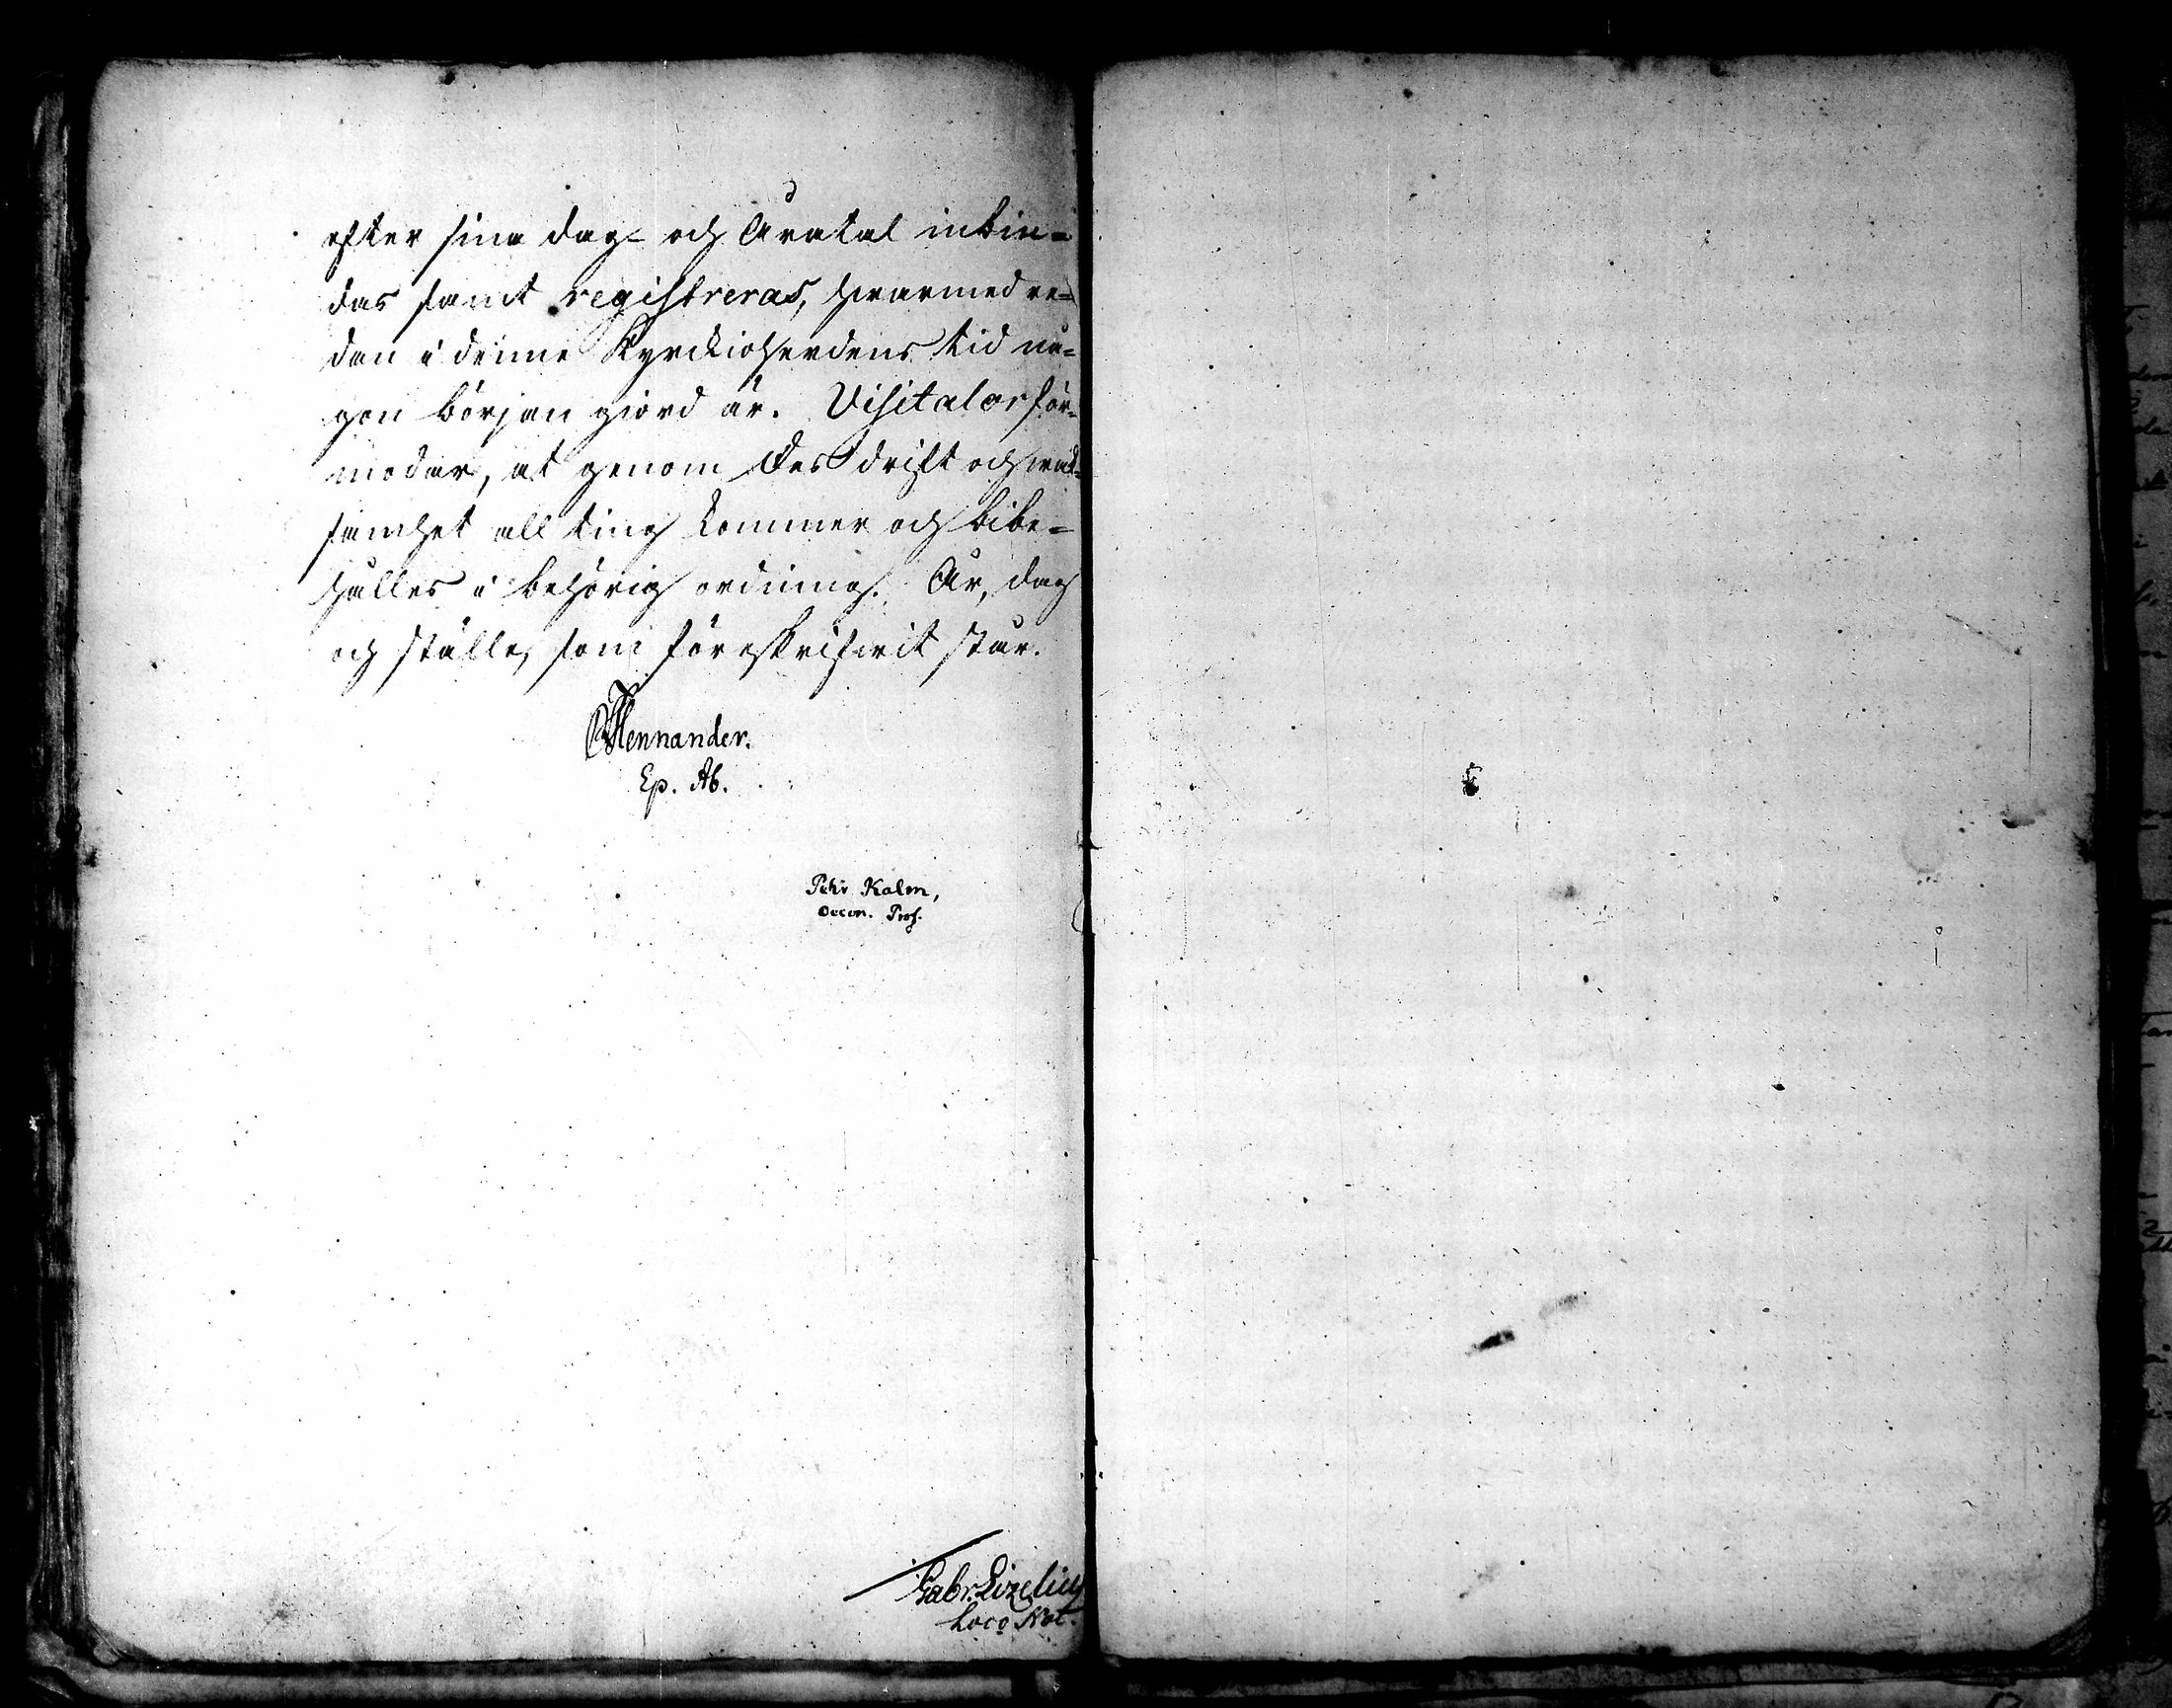 efter sina dag- och Åratal inbin=
das samt registreras, hwarmed re=
dan i denne Kyrckioherdens tid nå=
gon början giord är. Visitator för=
modar, at genom Des drift och wak=
samhet all ting kommer och bibe=
hålles i behörig ordning. År, dag
och ställe, som föreskrifwit står.
Mennander.
Ep. Ab.
Pehr Kalm,
Oecon. Prof.
Gabr. Lizelius
Loco Not.